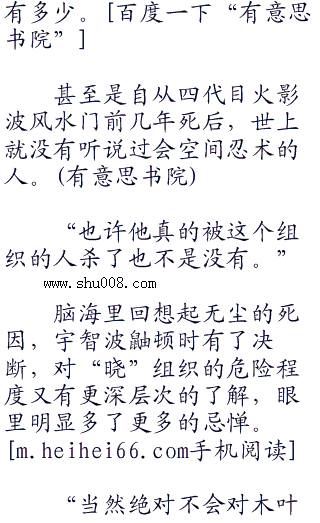 有多少。[百度一下“有意思
书院”]
甚至是自从四代目火影
波风水门前几年死后，世上
就没有听说过会空间忍术的
人。(有意思书院)
“也许他真的被这个组
织的人杀了也不是没有。”
www.shu008.com
脑海里回想起无尘的死
因，宇智波鼬顿时有了决
断，对“晓”组织的危险程
度又有更深层次的了解，眼
里明显多了更多的忌惮。
[m.heihei66.com手机阅读]
“当然绝对不会对木叶